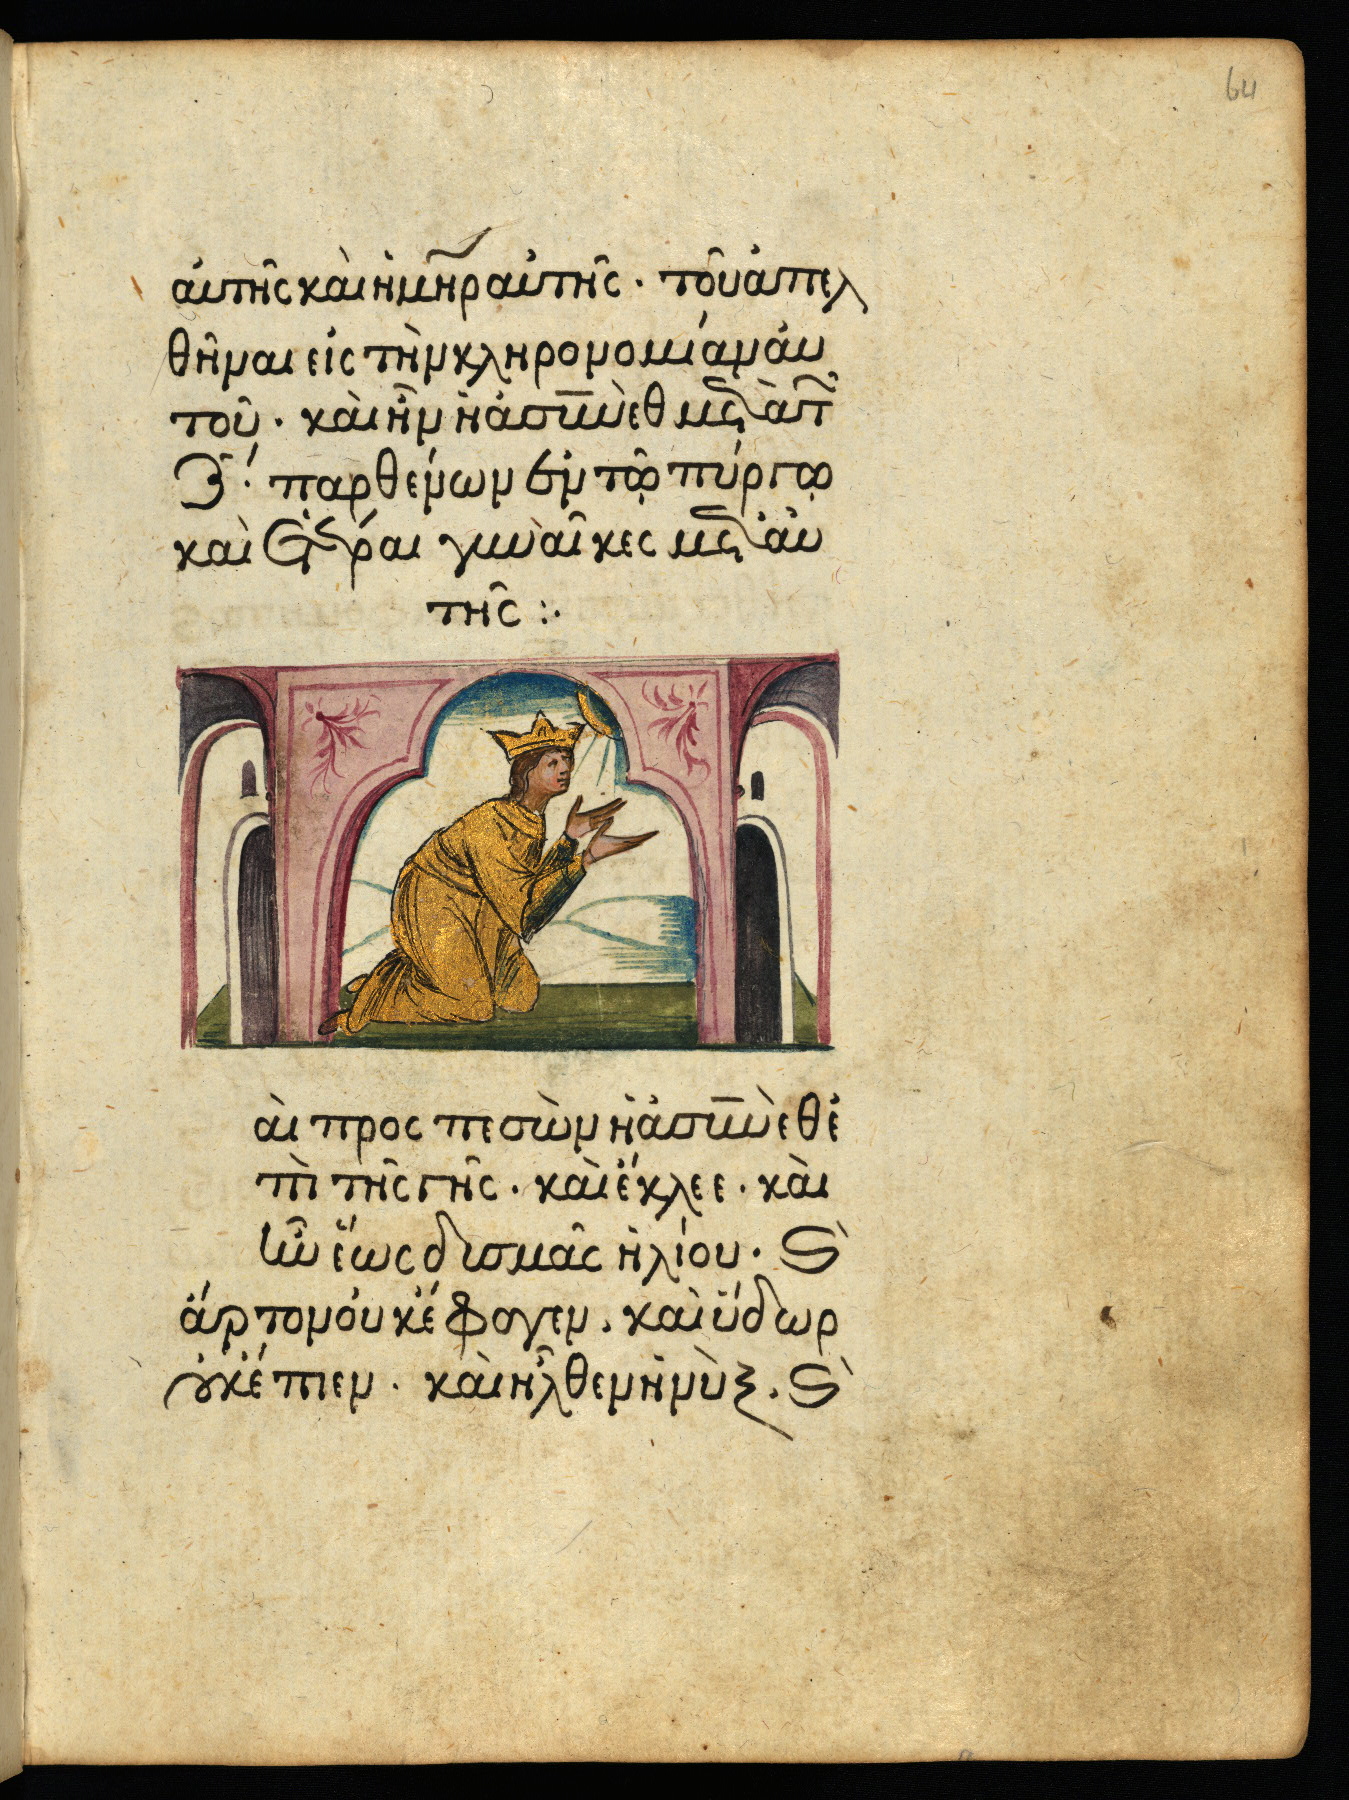 64
αὐτῆς καὶ ἡ μ̅η̅ρ αὐτῆς · τοῦ ἀπελ
θῆναι εἰς τὴν κληρονομίαν αὐ
τοῦ · καὶ ἦν ἡ ἀσυνὲθ μετὰ τ
ζ´ · παρθένων ἐν τῷ πύργῳ
καὶ ἕτεραι γυναῖκες μετ' αὐ
τῆς :·
αὶ προς πεσὼν ἡ ἀσυνὲθ ἐ
πὶ τῆς γῆς · καὶ ἔκλεε · καὶ
ἦν ἕως δυσμᾶς ἡλίου · Ϛ̀
ἄρτον οὐκ ἔφαγεν · καὶ ὕδωρ
οὐκ ἔπιεν · καὶ ἦλθεν ἡ νὺξ · Ϛ̀